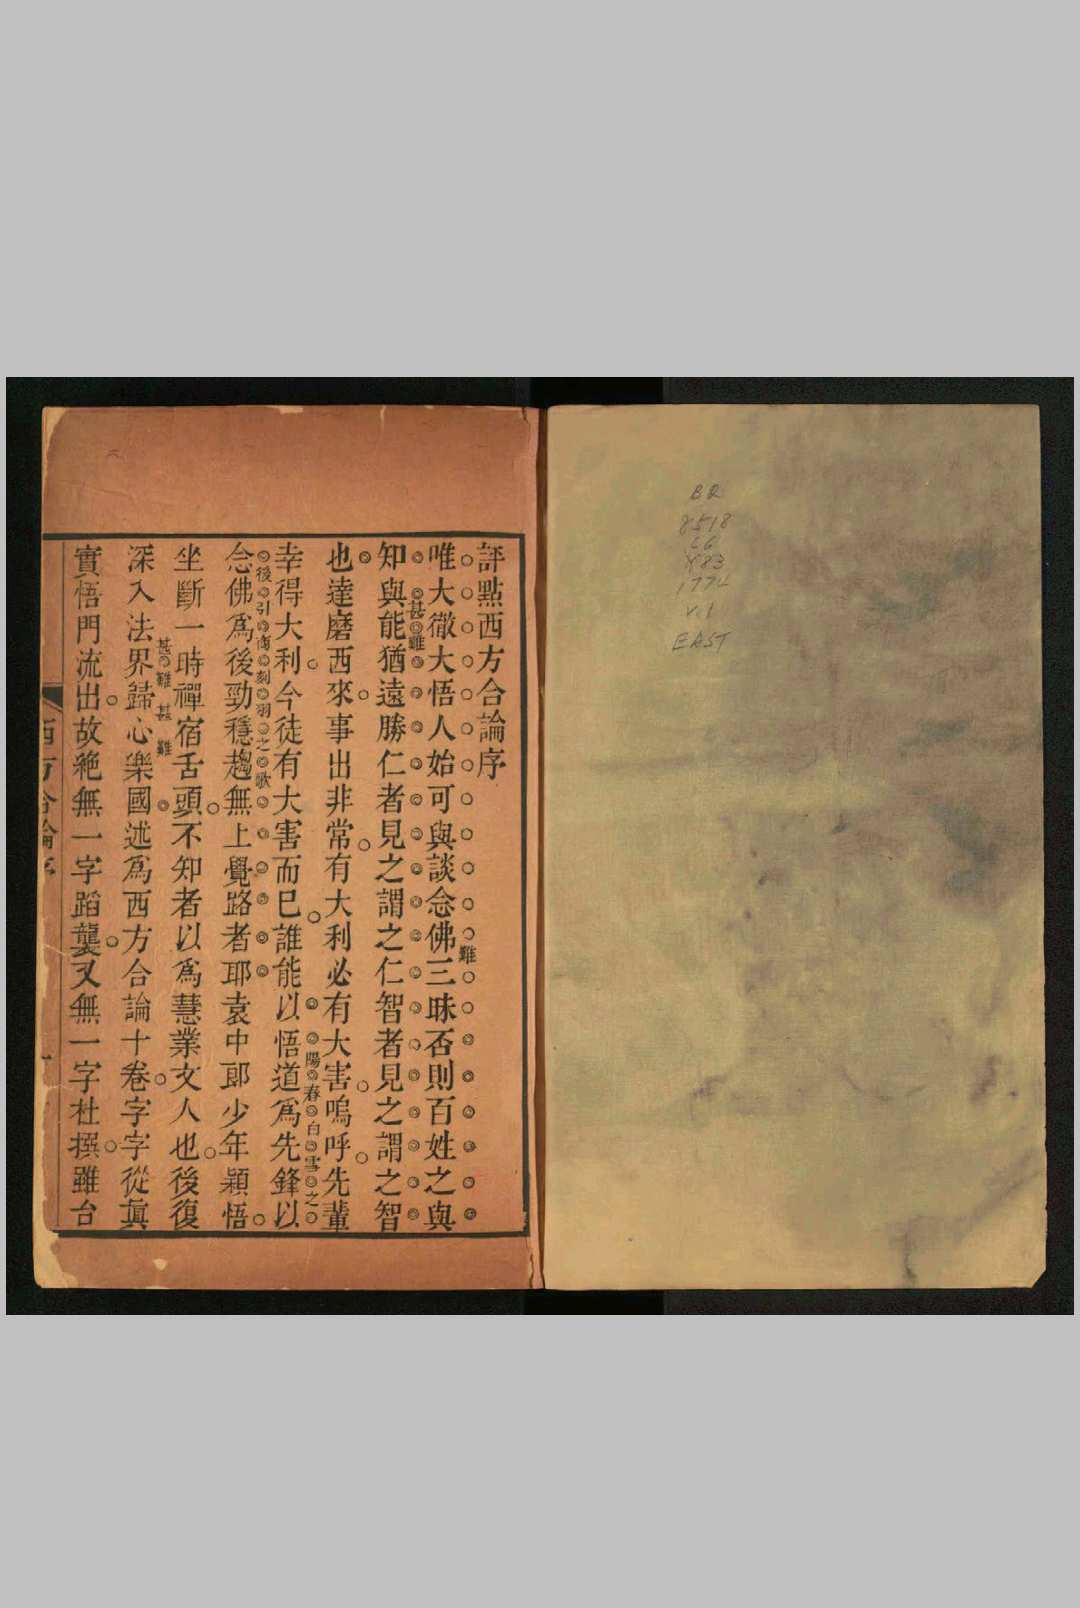 評點西方合論序
唯大徹大悟人始可與談念佛三昧否則百姓之與
難
知與能猶遠勝仁者見之謂之仁智者見之謂之智
甚難
也達磨西來事出非常有大利必有大害嗚呼先輩
幸得大利今徒有大害而已誰能以悟道爲先鋒以
陽春白雪之
念佛爲後勁穩趨無上覺路者耶袁中郎少年穎悟
後引商刻羽之歌
坐斷一時禪宿舌頭不知者以爲慧業文人也後復
深入法界歸心樂國述爲西方合論十卷字字從眞
甚難甚難
實悟門流出故絶無一字蹈襲又無一字杜撰雖台
西方合論序
一
BQ
8518
.C6
Y83
1774
v.1
EAST